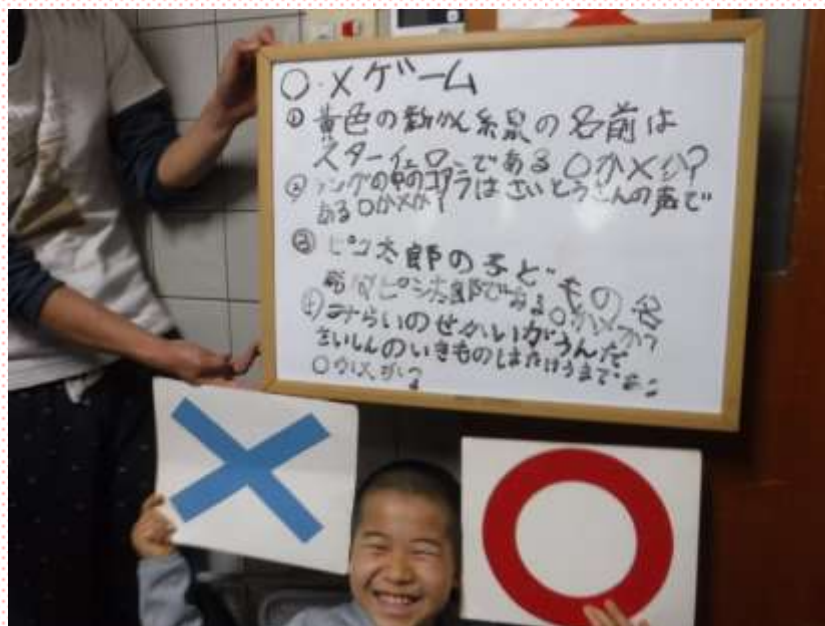 ○×ゲーム
① 黄色の新かん糸泉の名前は
スターイエローである ○か×か?
② ソングの中のゴリラはさいとうさんの声で
ある○か×か?
③ ピコ太郎の子どもの名
前はピコ太郎である○か×か?
④ みらいのせかいがうんだ
さいしんのいきものは
○か×か?